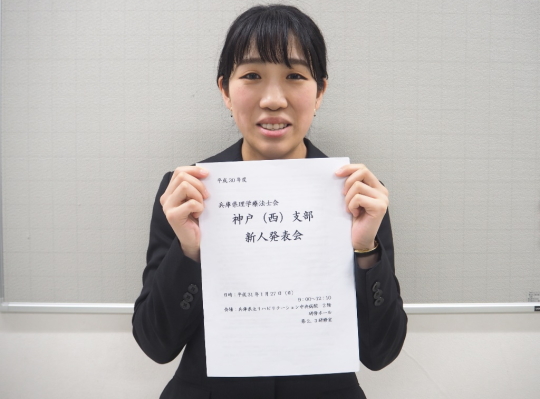 平成30年度
兵庫県理学療法士会
神戸（西）支部
新人発表会
日時：平成31年1月27日（日）
9：00～12：20
会場：兵庫県立リハビリテーション中央病院 2階
研修ホール
第2、3研修室